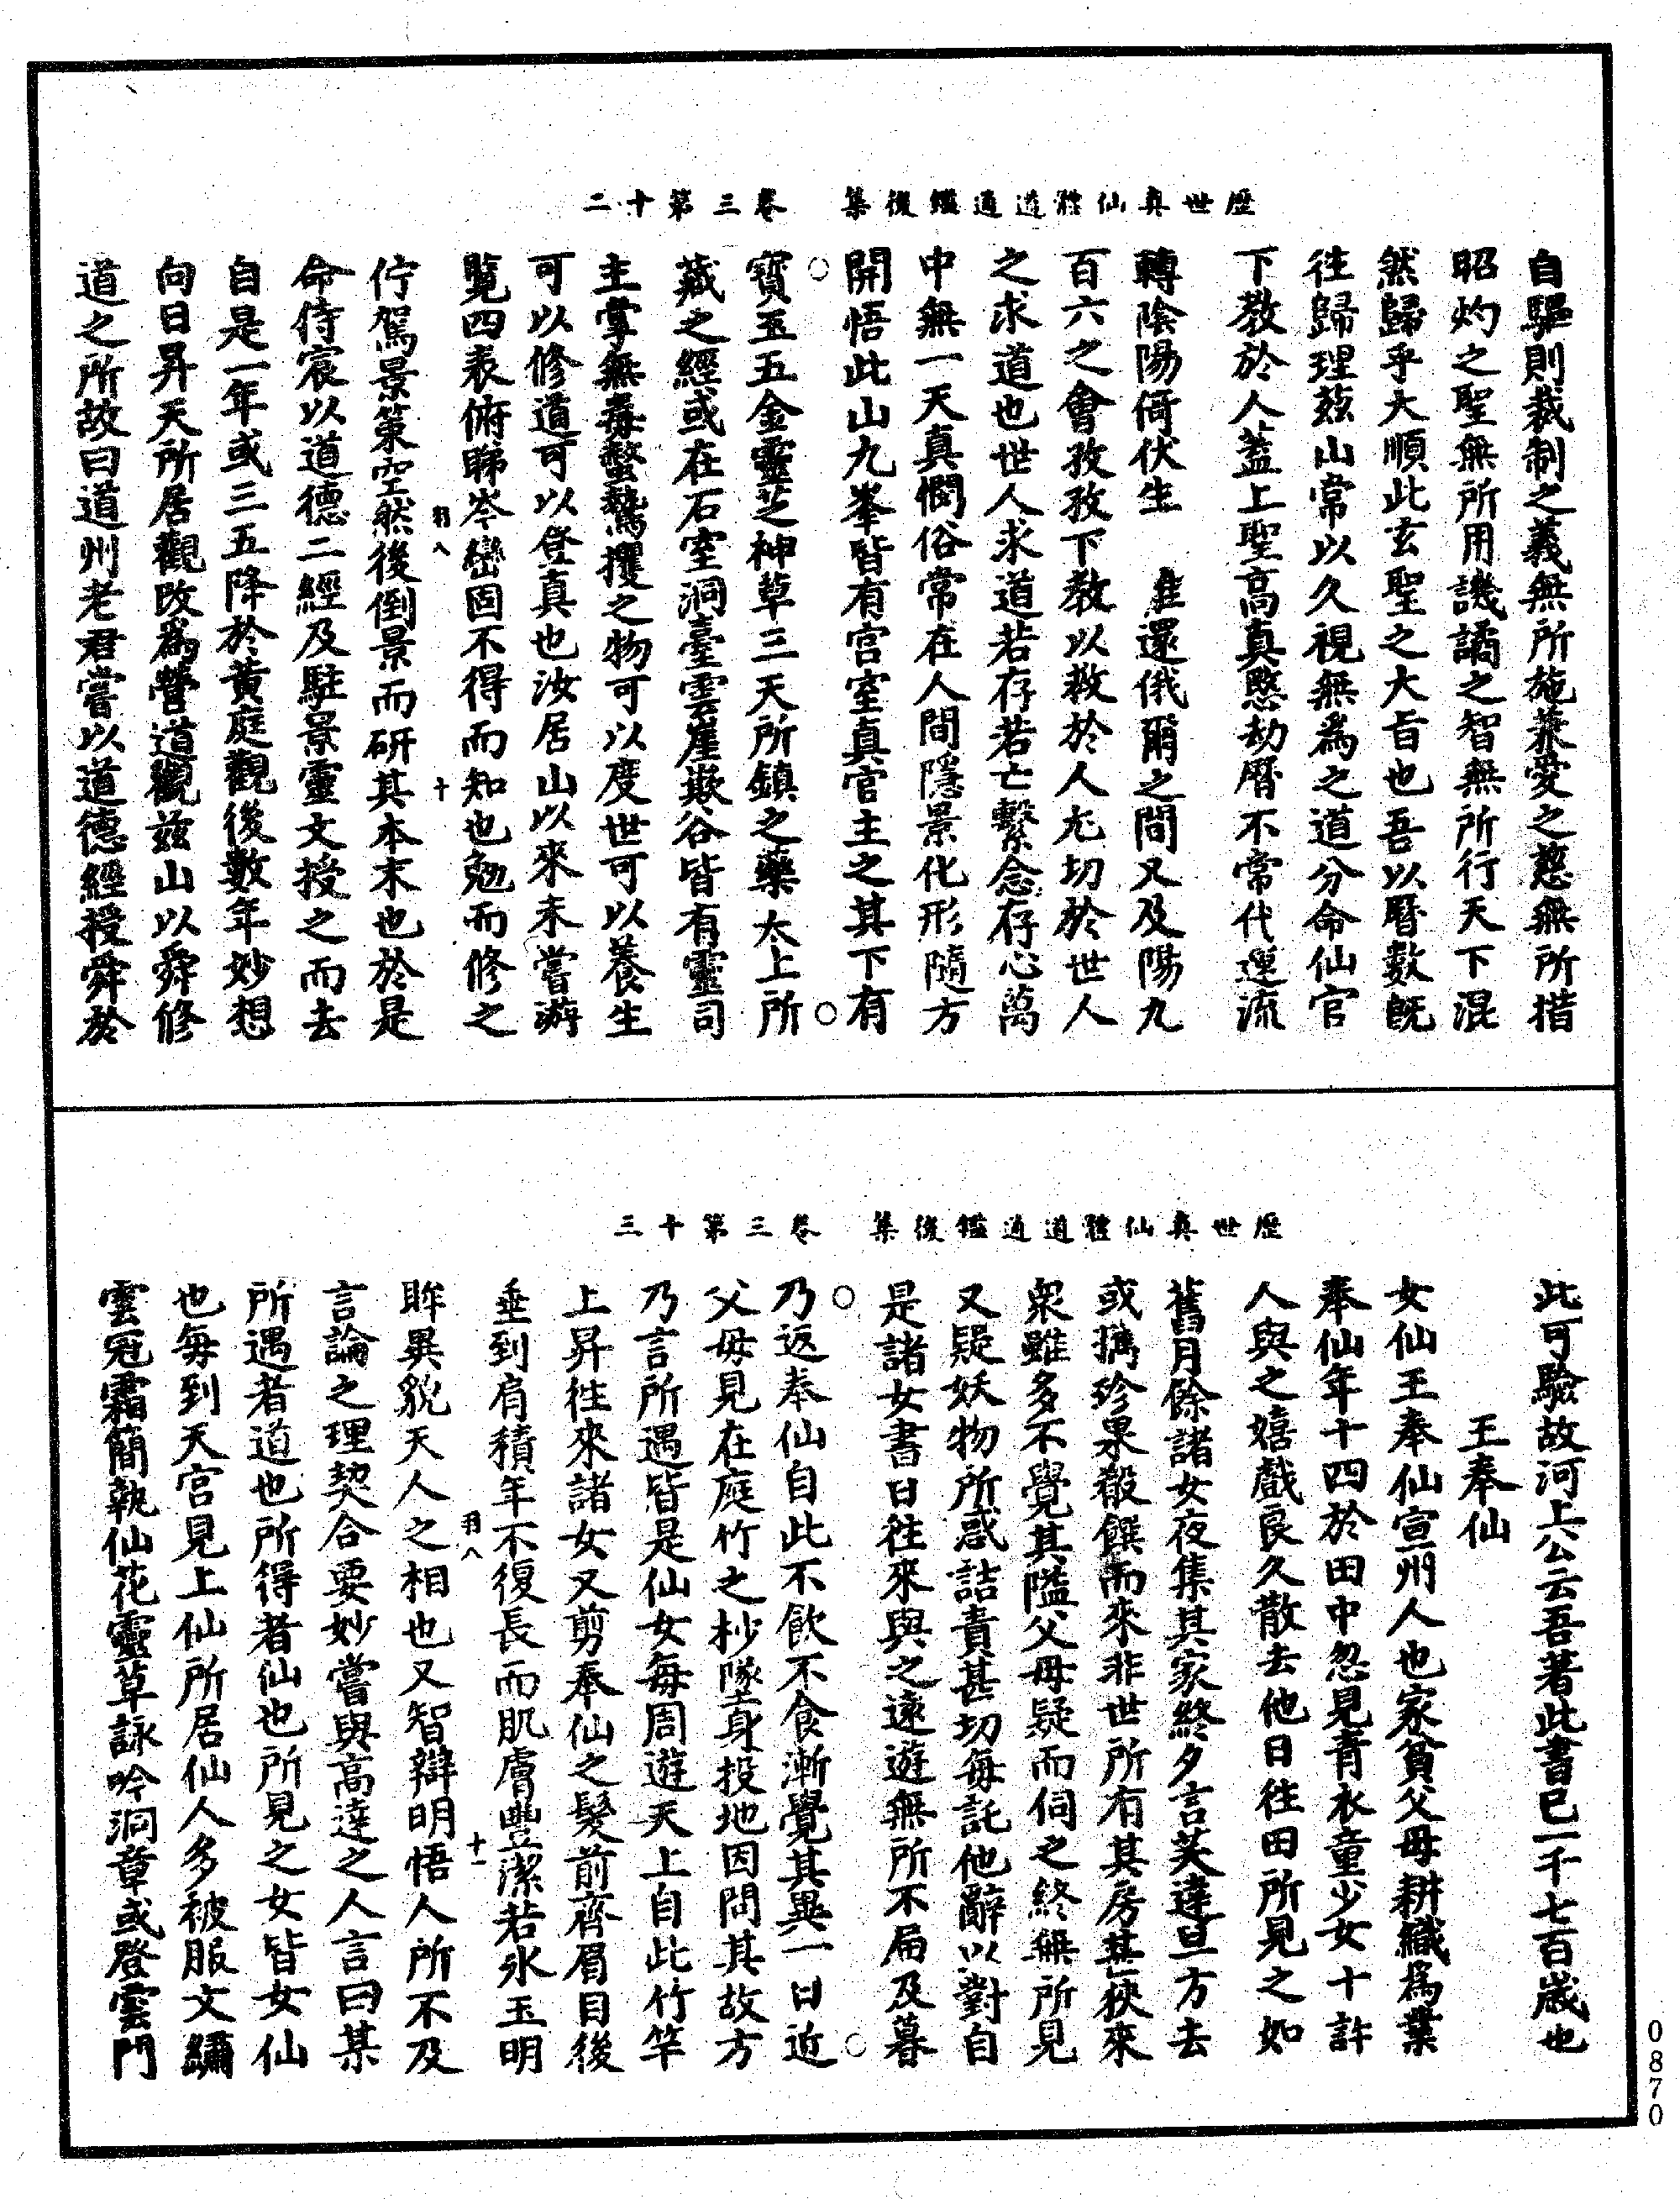 歷世真仙體道通鑑後集 卷三第十二
自驅則裁制之義無所施兼愛之慈無所措
昭灼之聖無所用譏譎之智無所行天下混
然歸乎大順此玄聖之大旨也吾以曆數既
往歸理茲山常以久視無為之道分命仙官
下教於人蓋上聖高真愍劫曆不常代運流
轉陰陽倚伏生 隹還俄爾之間又及陽九
百六之會孜孜下教以救於人尤切於世人
之求道也世人求道若存若亡繫念存心萬
中無一天真憫俗常在人間隱景化形隨方
開悟此山九峯皆有宮室真官主之其下有
寶玉五金靈芝神草三天所鎮之藥太上所
藏之經或在石室洞臺雲崖嵌谷皆有靈司
主掌無毒螫鷙攫之物可以度世可以養生
可以修道可以登真也汝居山以來未嘗遊
覽四表俯睇岑巒固不得而知也勉而修之
羽八 十
佇駕景策空然後倒景而研其本末也於是
命侍宸以道德二經及駐景靈文授之而去
自是一年或三五降於黃庭觀後數年妙想
向日昇天所居觀改為營道觀茲山以舜修
道之所故曰道州老君嘗以道德經授舜於
歷世真仙體道通鑑後集 卷三第十三
此可驗故河上公云吾著此書已一千七百歲也
王奉仙
女仙王奉仙宣州人也家貧父毋耕織為業
奉仙年十四於田中忽見青衣童少女十許
人與之嬉戲良久散去他日往田所見之如
舊月餘諸女夜集其家終夕言笑達旦方去
或攜珍果殽饌而來非世所有其房甚狹來
衆雖多不覺其隘父毋疑而伺之終無所見
又疑妖物所惑詰責甚切每託他辭以對自
是諸女晝日往來與之遠遊無所不屆及暮
乃返奉仙自此不飲不食漸覺其異一日近
父毋見在庭竹之杪墜身投地因問其故方
乃言所遇皆是仙女每周遊天上自此竹竿
上昇往來諸女又剪奉仙之髮前齊眉目後
垂到肩積年不復長而肌膚豐潔若氷玉明
羽八 十一
眸異貌天人之相也又智辯明悟人所不及
言論之理契合要妙嘗與高達之人言曰某
所遇者道也所得者仙也所見之女皆女仙
也每到天宮見上仙所居仙人多被服文繡
雲冠霜簡執仙花靈草詠吟洞章或登雲門
0870